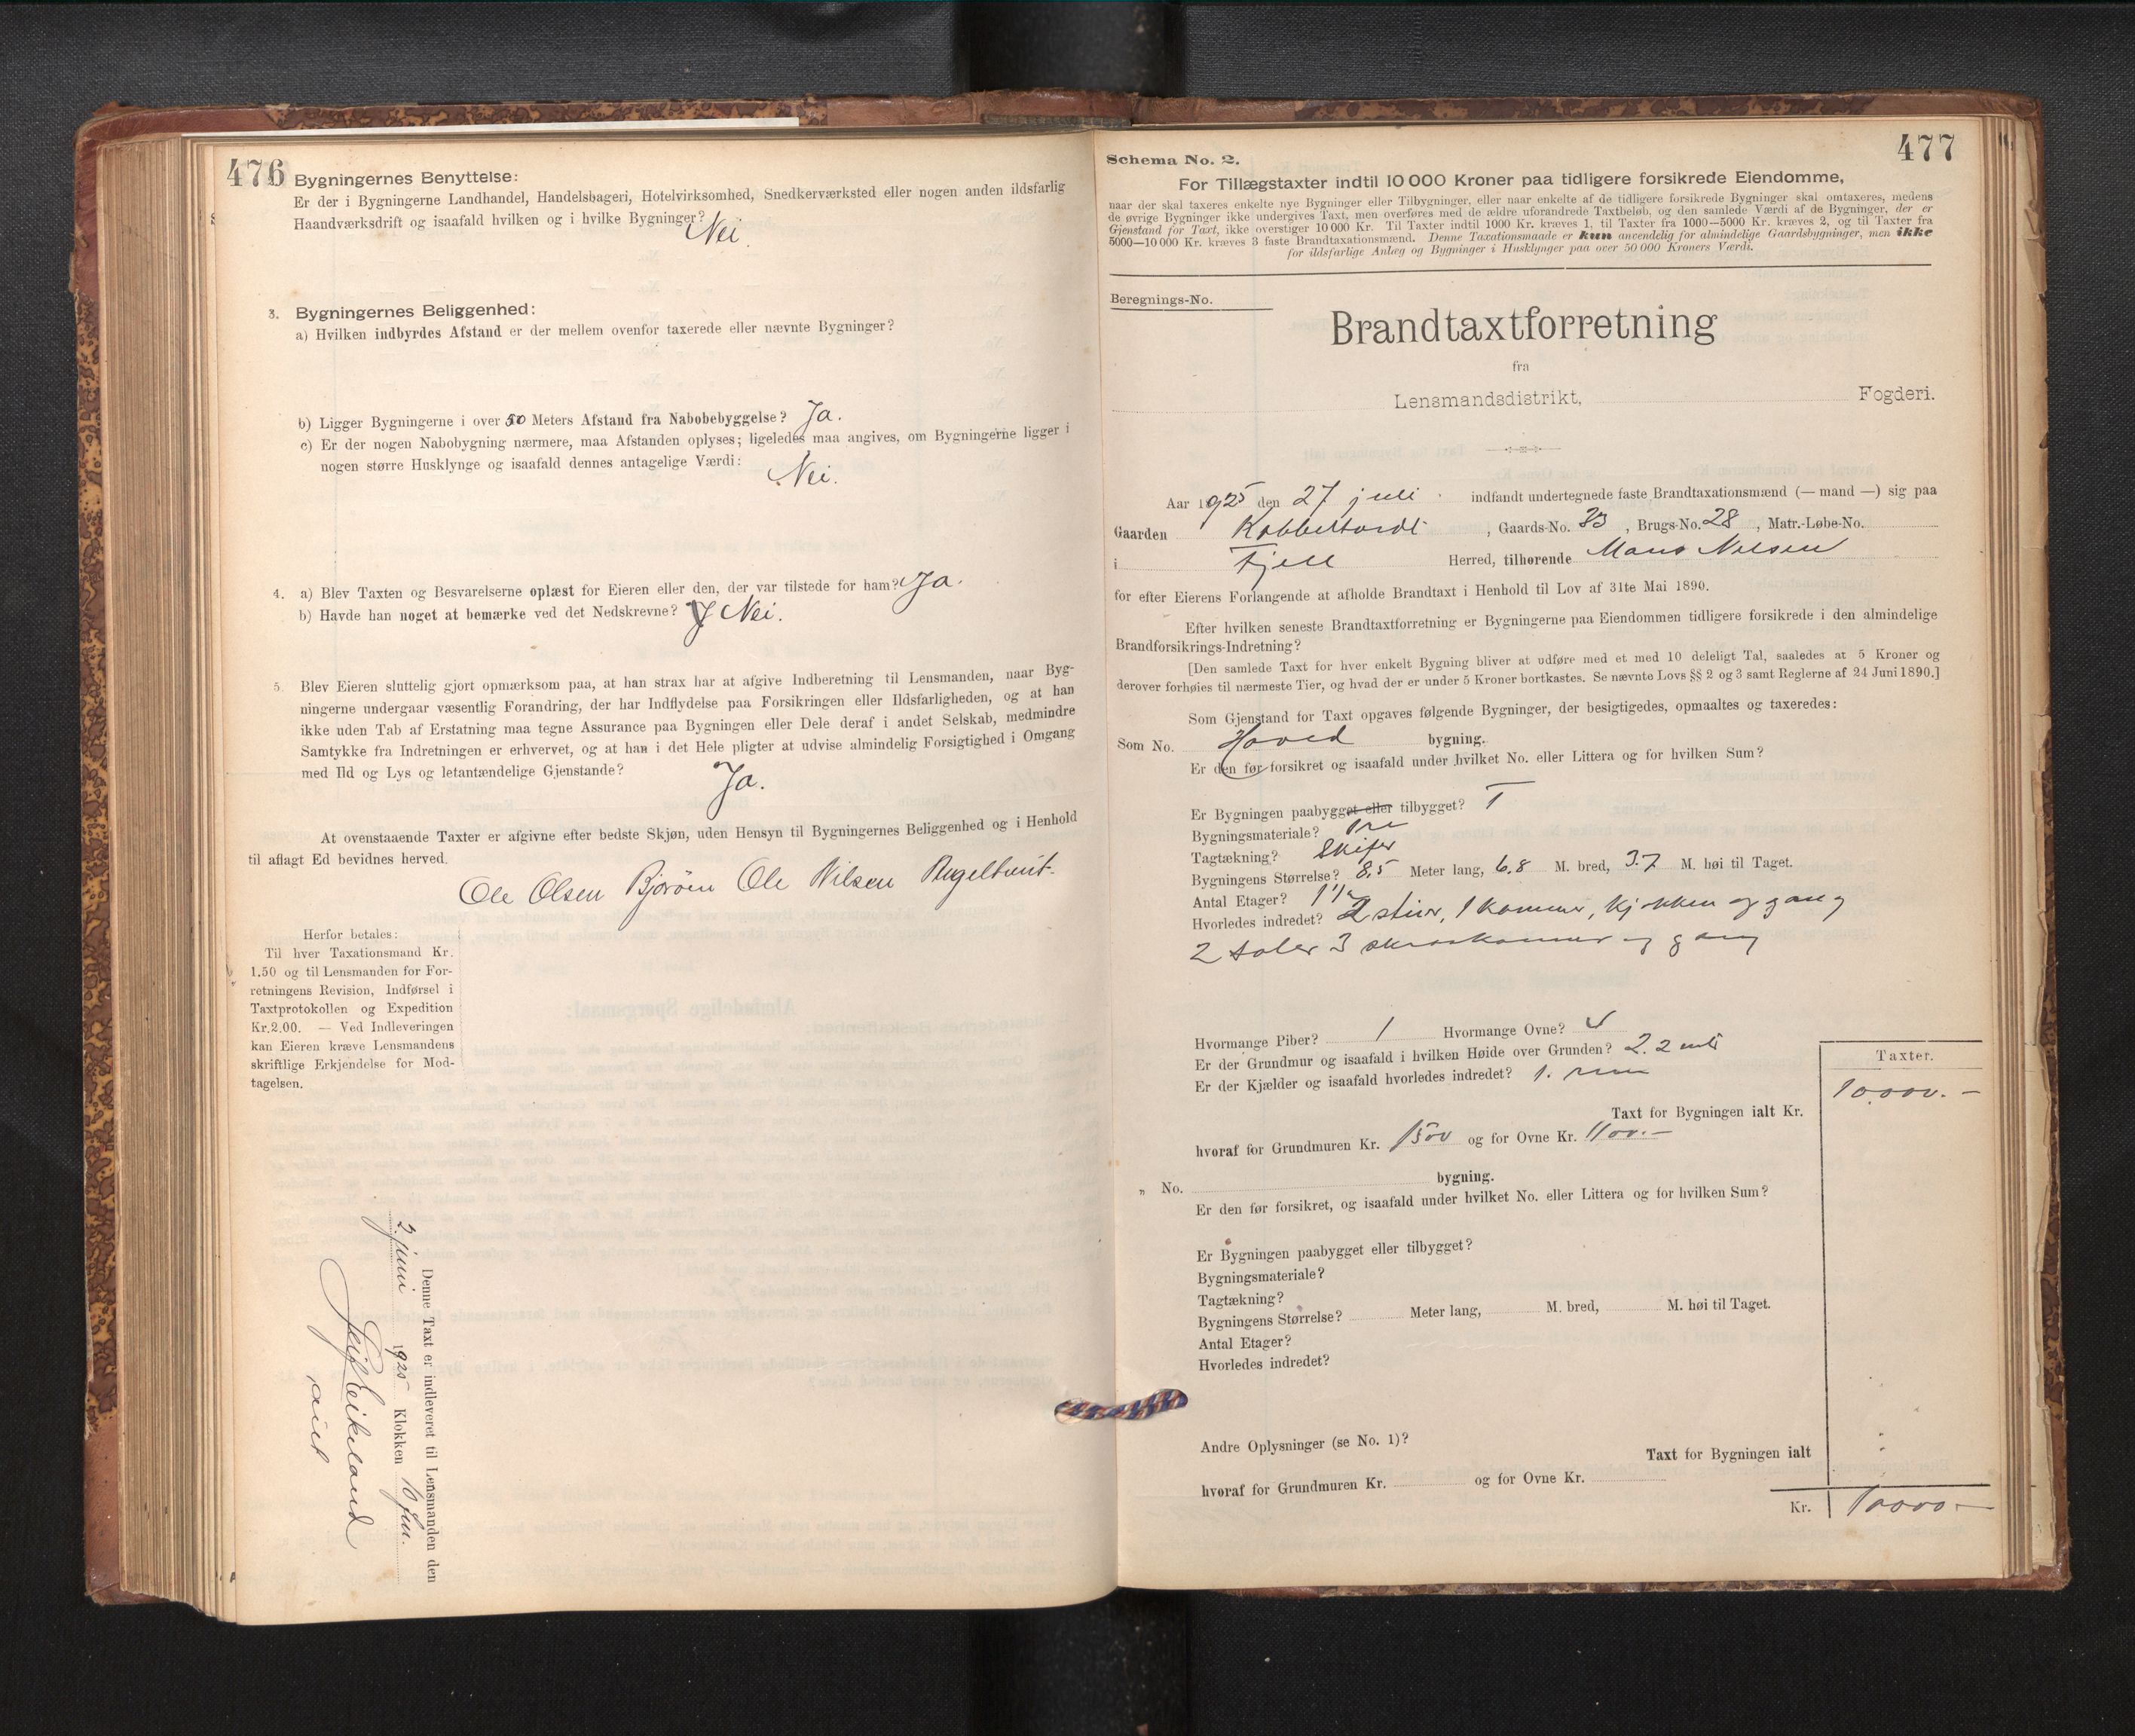 476
Bygningernes Benyttelse:
Er der i Bygningerne Landhandel, Handelsbageri, Hotelvirksomhed, Snedkerværksted eller nogen anden ildsfarlig
Haandværksdrift og isaafald hvilken og i hvilke Bygninger? Nei.
3. Bygningernes Beliggenhed:
a) Hvilken indbyrdes Afstand er der mellem ovenfor taxerede eller nævnte Bygninger?
b) Ligger Bygningerne i over 50 Meters Afstand fra Nabobebyggelse? Ja.
c) Er der nogen Nabobygning nærmere, maa Afstanden oplyses; ligeledes maa angives, om Bygningerne ligger i
nogen større Husklynge og isaafald dennes antagelige Værdi: Nei.
4. a) Blev Taxten og Besvarelserne oplæst for Eieren eller den, der var tilstede for ham? Ja.
b) Havde han noget at bemærke ved det Nedskrevne? Nei.
5. Blev Eieren sluttelig gjort opmærksom paa, at han strax har at afgive Indberetning til Lensmanden, naar Byg-
ningerne undergaar væsentlig Forandring, der har Indflydelse paa Forsikringen eller Ildsfarligheden, og at han
ikke uden Tab af Erstatning maa tegne Assurance paa Bygningen eller Dele deraf i andet Selskab, medmindre
Samtykke fra Indretningen er erhvervet, og at han i det Hele pligter at udvise almindelig Forsigtighed i Omgang
med Ild og Lys og letantændelige Gjenstande? Ja.
At ovenstaaende Taxter er afgivne efter bedste Skjøn, uden Hensyn til Bygningernes Beliggenhed og i Henhold
til aflagt Ed bevidnes herved.
Ole Olsen Bjorøen Ole Nilsen
Herfor betales:
Til hver Taxationsmand Kr.
1.50 og til Lensmanden for For-
retningens Revision, Indførsel i
Taxtprotokollen og Expedition
Kr.2.00. — Ved Indleveringen
kan Eieren kræve Lensmandens
skriftlige Erkjendelse for Mod-
tagelsen.
Denne Taxt er indleveret til Lensmanden den
2 juni 1925 Klokken 10 fm.
Leif Leikeland
477
Schema No. 2.
For Tillægstaxter indtil 10 000 Kroner paa tidligere forsikrede Eiendomme,
naar der skal taxeres enkelte nye Bygninger eller Tilbygninger, eller naar enkelte af de tidligere forsikrede Bygninger skal omtaxeres, medens
de øvrige Bygninger ikke undergives Taxt, men overføres med de ældre uforandrede Taxtbeløb, og den samlede Værdi af de Bygninger, der er
Gjenstand for Taxt, ikke overstiger 10 000 Kr. Til Taxter indtil 1000 Kr. kræves 1, til Taxter fra 1000—5000 Kr. kræves 2, og til Taxter fra
5000—10 000 Kr. kræves 3 faste Brandtaxationsmænd. Denne Taxationsmaade er kun anvendelig for almindelige Gaardsbygninger, men ikke
for ildsfarlige Anlæg og Bygninger i Husklynger paa over 50 000 Kroners Værdi.
Beregnings-No.
Brandtaxtforretning
fra
Lensmandsdistrikt, Fogderi.
Aar 1925 den 27 juli indfandt undertegnede faste Brandtaxationsmænd (— mand —) sig paa
Gaarden Kobbeltvedt, Gaards-No. 33, Brugs-No. 28, Matr.-Løbe-No.
i Fjell Herred, tilhørende Mons Nilsen
for efter Eierens Forlangende at afholde Brandtaxt i Henhold til Lov af 31te Mai 1890.
Efter hvilken seneste Brandtaxtforretning er Bygningerne paa Eiendommen tidligere forsikrede i den almindelige
Brandforsikrings-Indretning?
[Den samlede Taxt for hver enkelt Bygning bliver at udføre med et med 10 deleligt Tal, saaledes at 5 Kroner og
derover forhøies til nærmeste Tier, og hvad der er under 5 Kroner bortkastes. Se nævnte Lovs §§ 2 og 3 samt Reglerne af 24 Juni 1890.]
Som Gjenstand for Taxt opgaves følgende Bygninger, der besigtigedes, opmaaltes og taxeredes:
Som No. Hoved bygning.
Er den før forsikret og isaafald under hvilket No. eller Littera og for hvilken Sum?
Er Bygningen paabygget eller tilbygget? T
Bygningsmateriale? Tre
Tagtækning? Skifer
Bygningens Størrelse? 8.5 Meter lang, 6.8 M. bred, 3.7 M. høi til Taget.
Antal Etager? 1 1/2
Hvorledes indredet? 2 stuer, 1 kammer, kjøkken og gang
2 saler 3 skraakammer og gang
Hvormange Piber? 1 Hvormange Ovne?
Er der Grundmur og isaafald i hvilken Høide over Grunden? 2.2 mtr
Er der Kjælder og isaafald hvorledes indredet? 1. rum
Taxter.
Taxt for Bygningen ialt Kr. 10.000.—
hvoraf for Grundmuren Kr. 1500 og for Ovne Kr. 1100.—
„ No. bygning.
Er den før forsikret, og isaafald under hvilket No. eller Littera og for hvilken Sum?
Er Bygningen paabygget eller tilbygget?
Bygningsmateriale?
Tagtækning?
Bygningens Størrelse? Meter lang, M. bred, M. høi til Taget.
Antal Etager?
Hvorledes indredet?
Andre Oplysninger (se No. 1)?
Taxt for Bygningen ialt
hvoraf for Grundmuren Kr. og for Ovne Kr.
Kr. 10000—